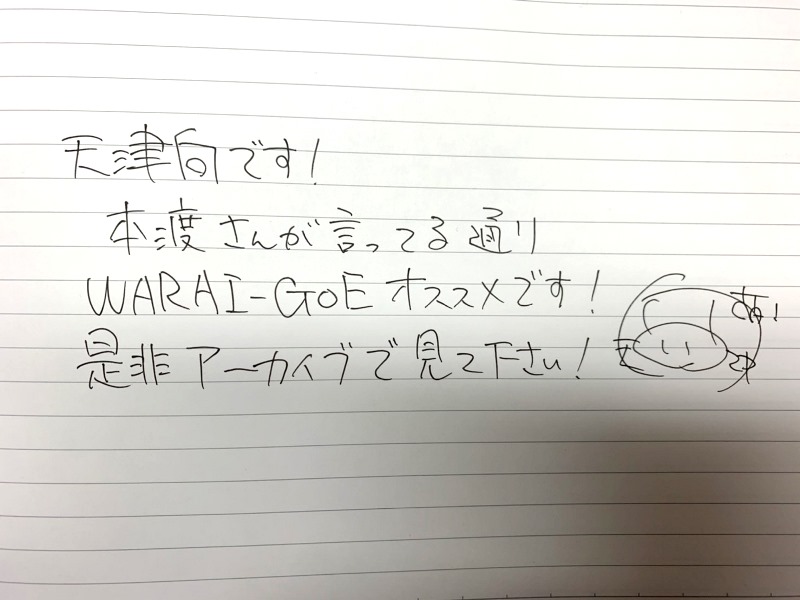 天津向です!
本渡さんが言ってる通り
WARAI-GOEオススメです!
是非アーカイブで見て下さい!